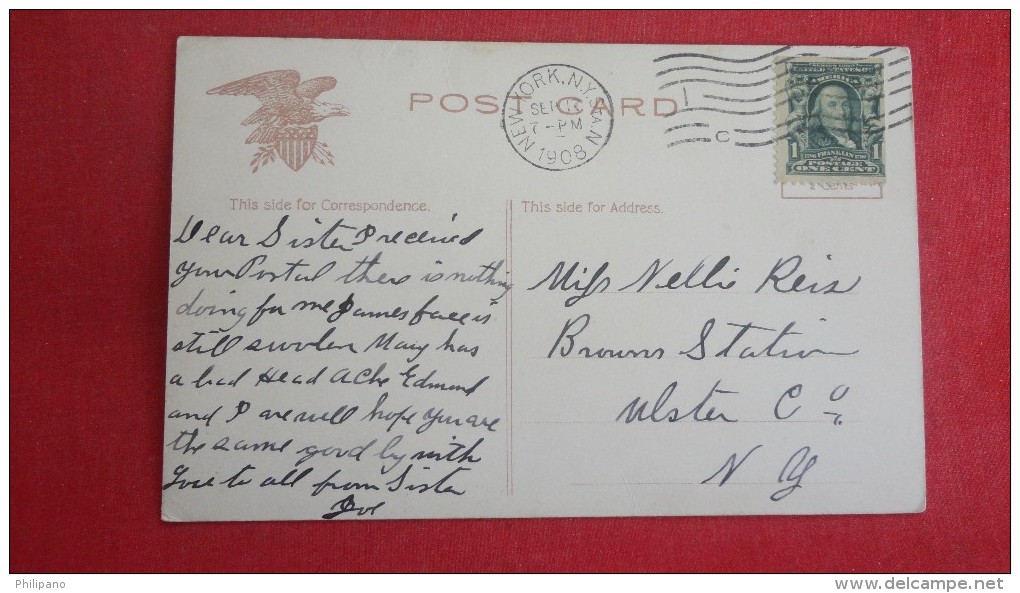 POST CARD
NEW YORK, N.Y.
7-PM
1908
C
UNITED STATES OF AMERICA
1 FRANKLIN 1
POSTAGE
ONE CENT
This side for Correspondence.
This side for Address.
Dear Sister I received
your Postal there is nothing
doing for me James face is
still swolen Mary has
a bad Head Ache Edmund
and I are well hope you are
the same good by with
love to all from Sister
Miss Nellie Reis
Browns Station
Ulster Co.
N Y
Philipano
www.delcampe.net